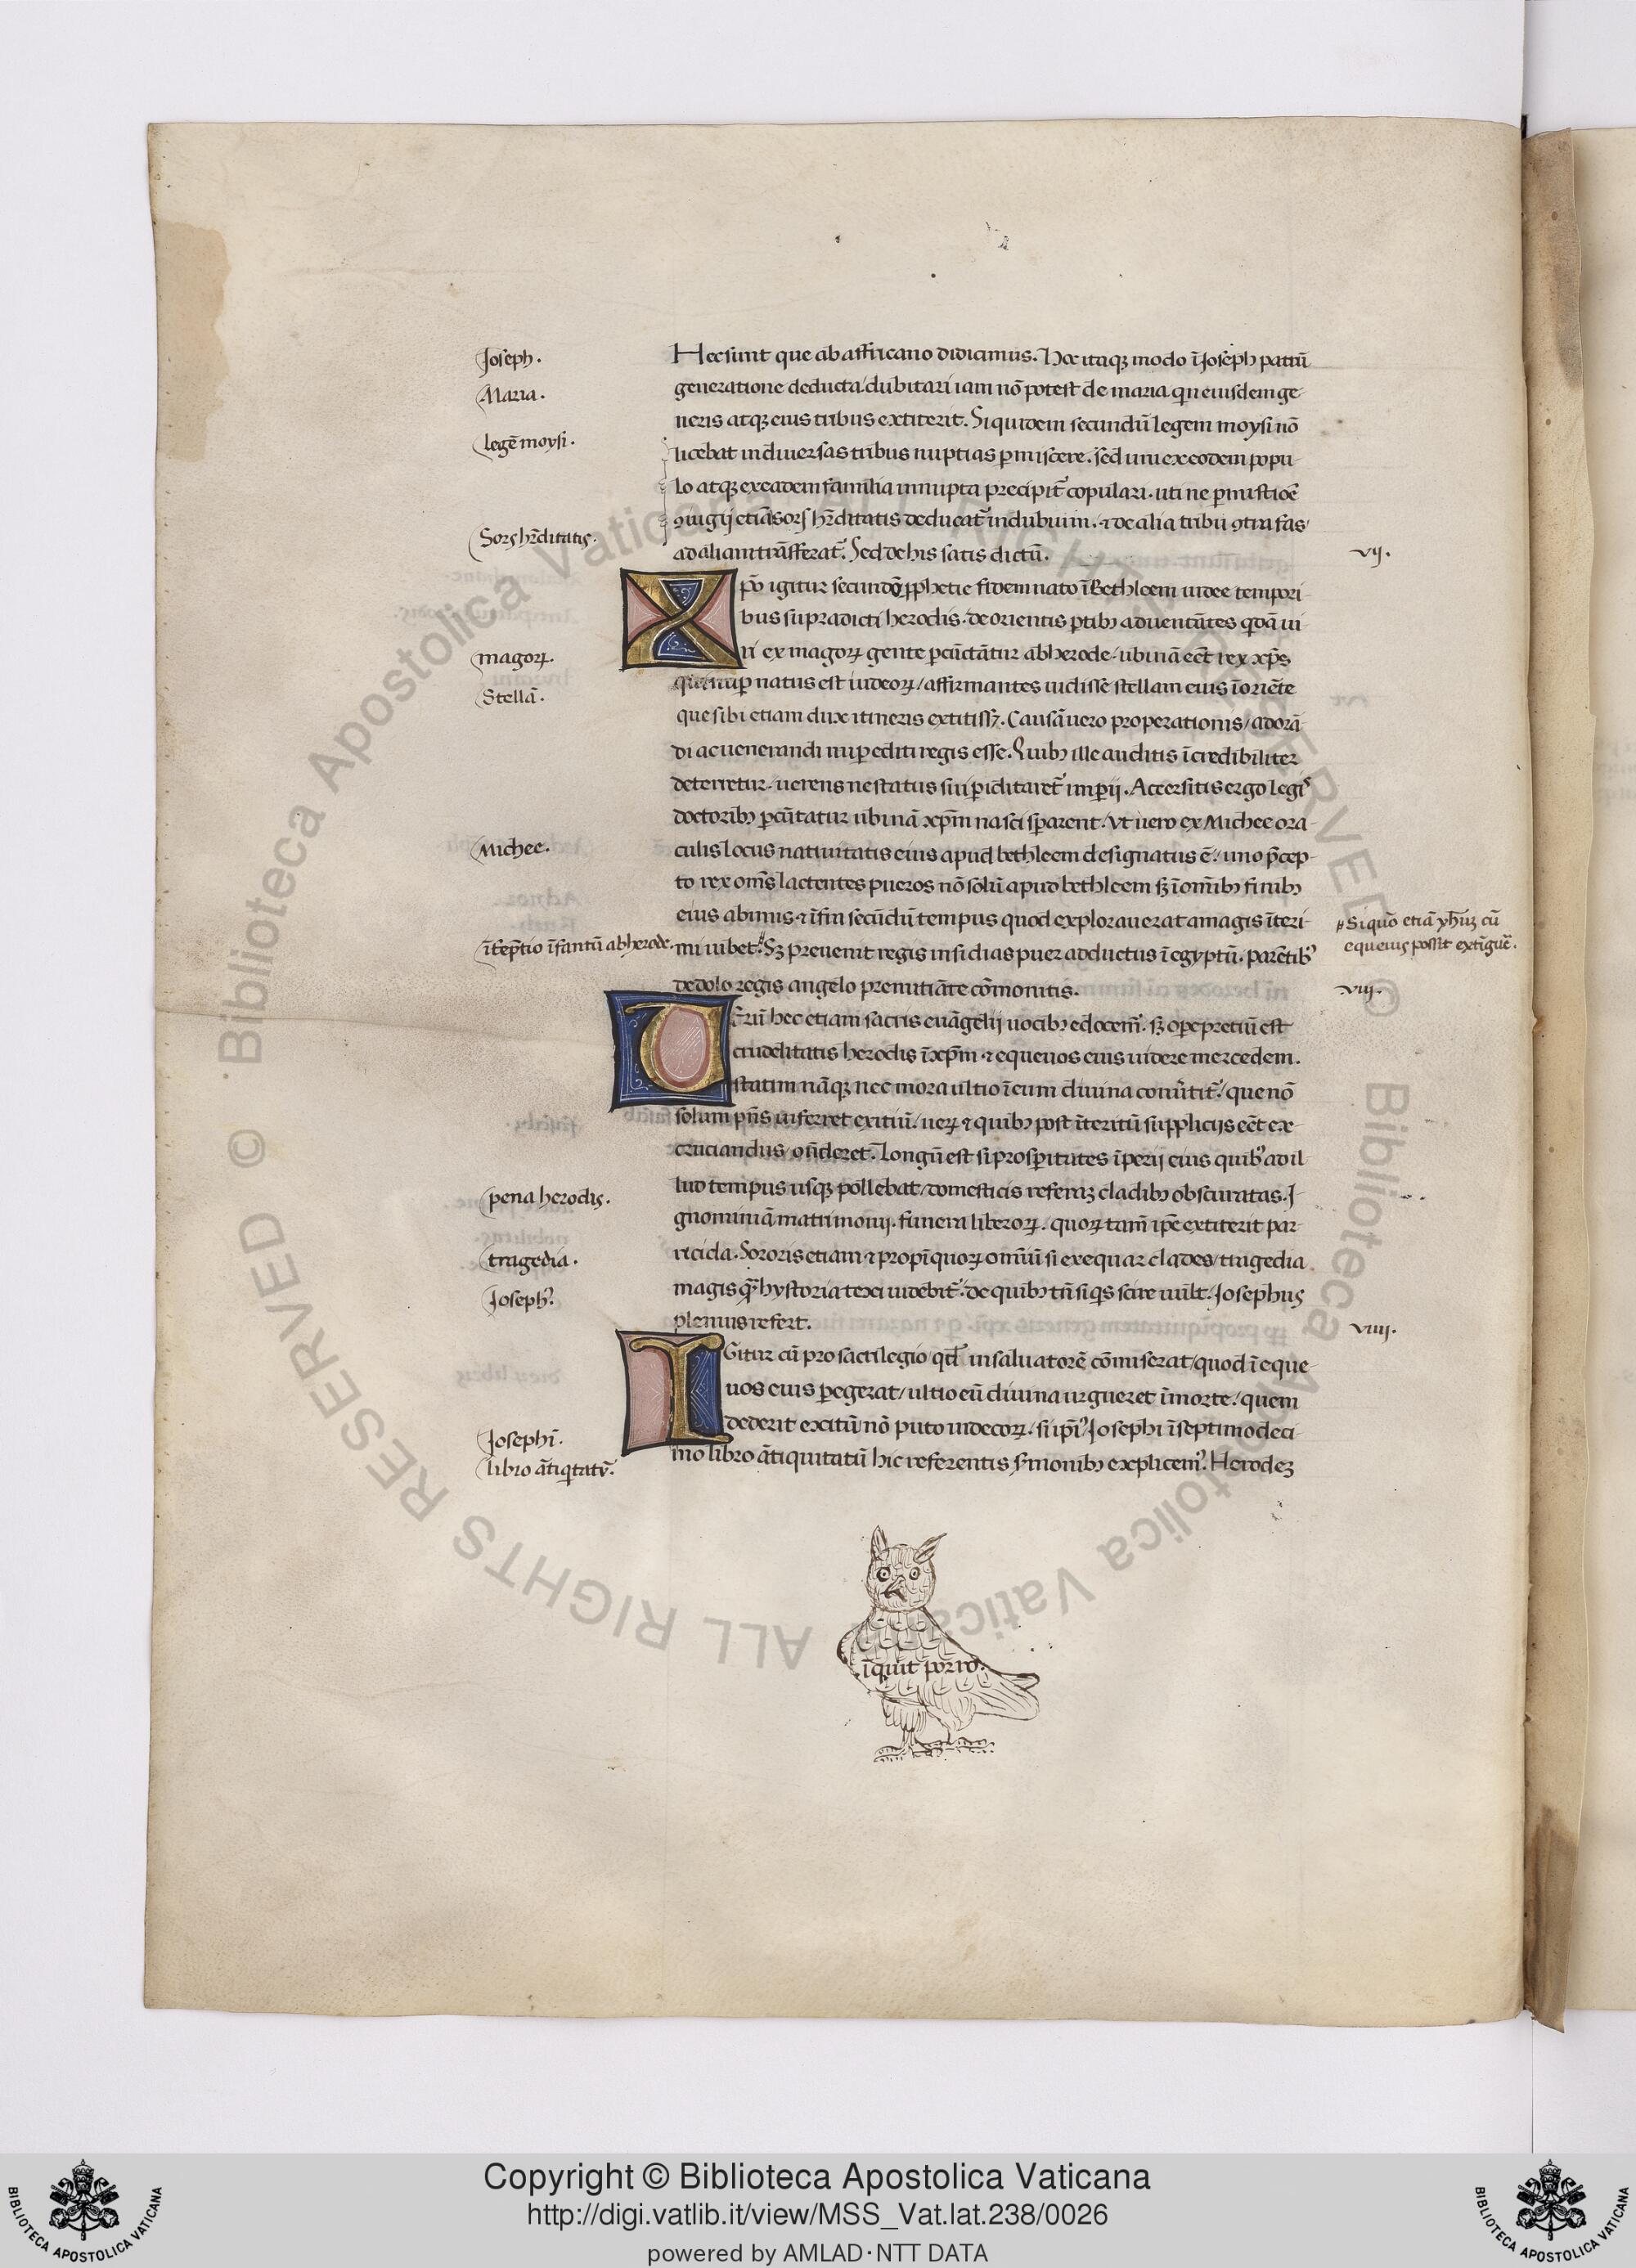 Joseph.
Maria.
legē moysi.
Sors hr̄ditatis.
Hec sunt que ab affricano didicimus. Hoc itaqꝫ modo ī Joseph patrū
generatione deducta dubitari iam nō potest de maria qn eiusdem ge-
neris atqꝫ eius tribus extiterit. Siquidem secundū legem moysi nō
licebat in diuersas tribus nuptias ꝑmiscere. sed uni ex eodem popu-
lo atqꝫ ex eadem familia innupta precipit̉ copulari. uti ne ꝑmistiōe
ꝯiugij etiā sors hr̄ditatis deducat̉ in dubium. ⁊ de alia tribu ꝯtra fas
ad aliam trāsferat̉. Sed de his satis dictū.
vij.
magoꝝ.
Stellā.
Michee.
īteꝑtio īfantū ab herode.
Xp̄o igitur secundū ꝓphetie fidem nato ī Bethleem iudee tempori-
bus supradicti herodis. de orientis ꝑtibꝫ aduentātes qdā ui
ri ex magoꝝ gente ꝑcūctātur ab herode. ubinā eēt rex xp̄s
qui nuꝑ natus est iudeoꝝ / affirmantes uidisse stellam eius ī oriēte
que sibi etiam dux itineris extitissꝫ. Causā uero properationis / adorā
di ac uenerandi nuꝑ editi regis esse. Quibꝫ ille auditis īcredibiliter
deterretur. uerens ne status sui ꝑiclitaret̉ imꝑii. Accersitis ergo legis
doctoribꝫ ꝑcūtatur ubinā xp̄m nasci sꝑarent. Vt uero ex Michee ora
culis locus natiuitatis eius apud bethleem designatus ē. / uno p̄cep-
to rex om̄s lactentes pueros nō solū apud bethleem sꝫ ī om̄ibꝫ finibꝫ
eius abimis. ⁊ īfra secūdū tempus quod explorauerat a magis īteri-
mi iubet. Sꝫ preuenit regis insidias puer adductus ī egyptū. parētibꝰ
de dolo regis angelo prenutiāte cōmonitis.
Si quō etiā yhūꝫ cū
equeuis possit extīguē.
viij.
pena herodis.
tragedia.
Josephꝰ.
Verū hec etiam sacris euāgelij uocibꝫ edocemꝰ. sꝫ oꝑepretiū est
crudelitatis herodis ī xp̄m ⁊ equeuos eius uidere mercedem.
statim nāqꝫ nec mora ultio ī eum diuina conūtit̉. / que nō
solum pn̄s inferret exitiū. / ueꝝ ⁊ quibꝫ post īteritū supplicijs eēt ex-
cruciandus / ostēderet. Longū est si prosꝑitates īperij eius quibꝰ ad il
lud tempus usqꝫ pollebat / domesticis referaꝫ cladibꝫ obscuratas. I-
gnominiā matrimonij. funera liberoꝝ. quoꝝ tam̄ ip̄e extiterit par-
ricida. Sororis etiam ⁊ propīquoꝝ om̄iū si exequar clades / tragedia
magis q̄ hystoria texi uidebit̉. de quibꝫ tn̄ si qs scire uult. Josephus
plenius refert.
viiii.
Josephī.
libro ātiqtatꝝ.
IGitur cū pro sacrilegio qd̄ in saluatorē cōmiserat / quod ī eque-
uos eius ꝑegerat / ultio eū diuina urgueret ī morte. / quem
dederit exitū nō puto indecoꝝ. si ip̄iꝰ Josephi ī septimodeci-
mo libro ātiquitatū hic referentis s̄monibꝫ explicemꝰ. Herodeꝫ
īquit porro.
Copyright © Biblioteca Apostolica Vaticana
http://digi.vatlib.it/view/MSS_Vat.lat.238/0026
powered by AMLAD · NTT DATA
BIBLIOTECA APOSTOLICA VATICANA
BIBLIOTECA APOSTOLICA VATICANA